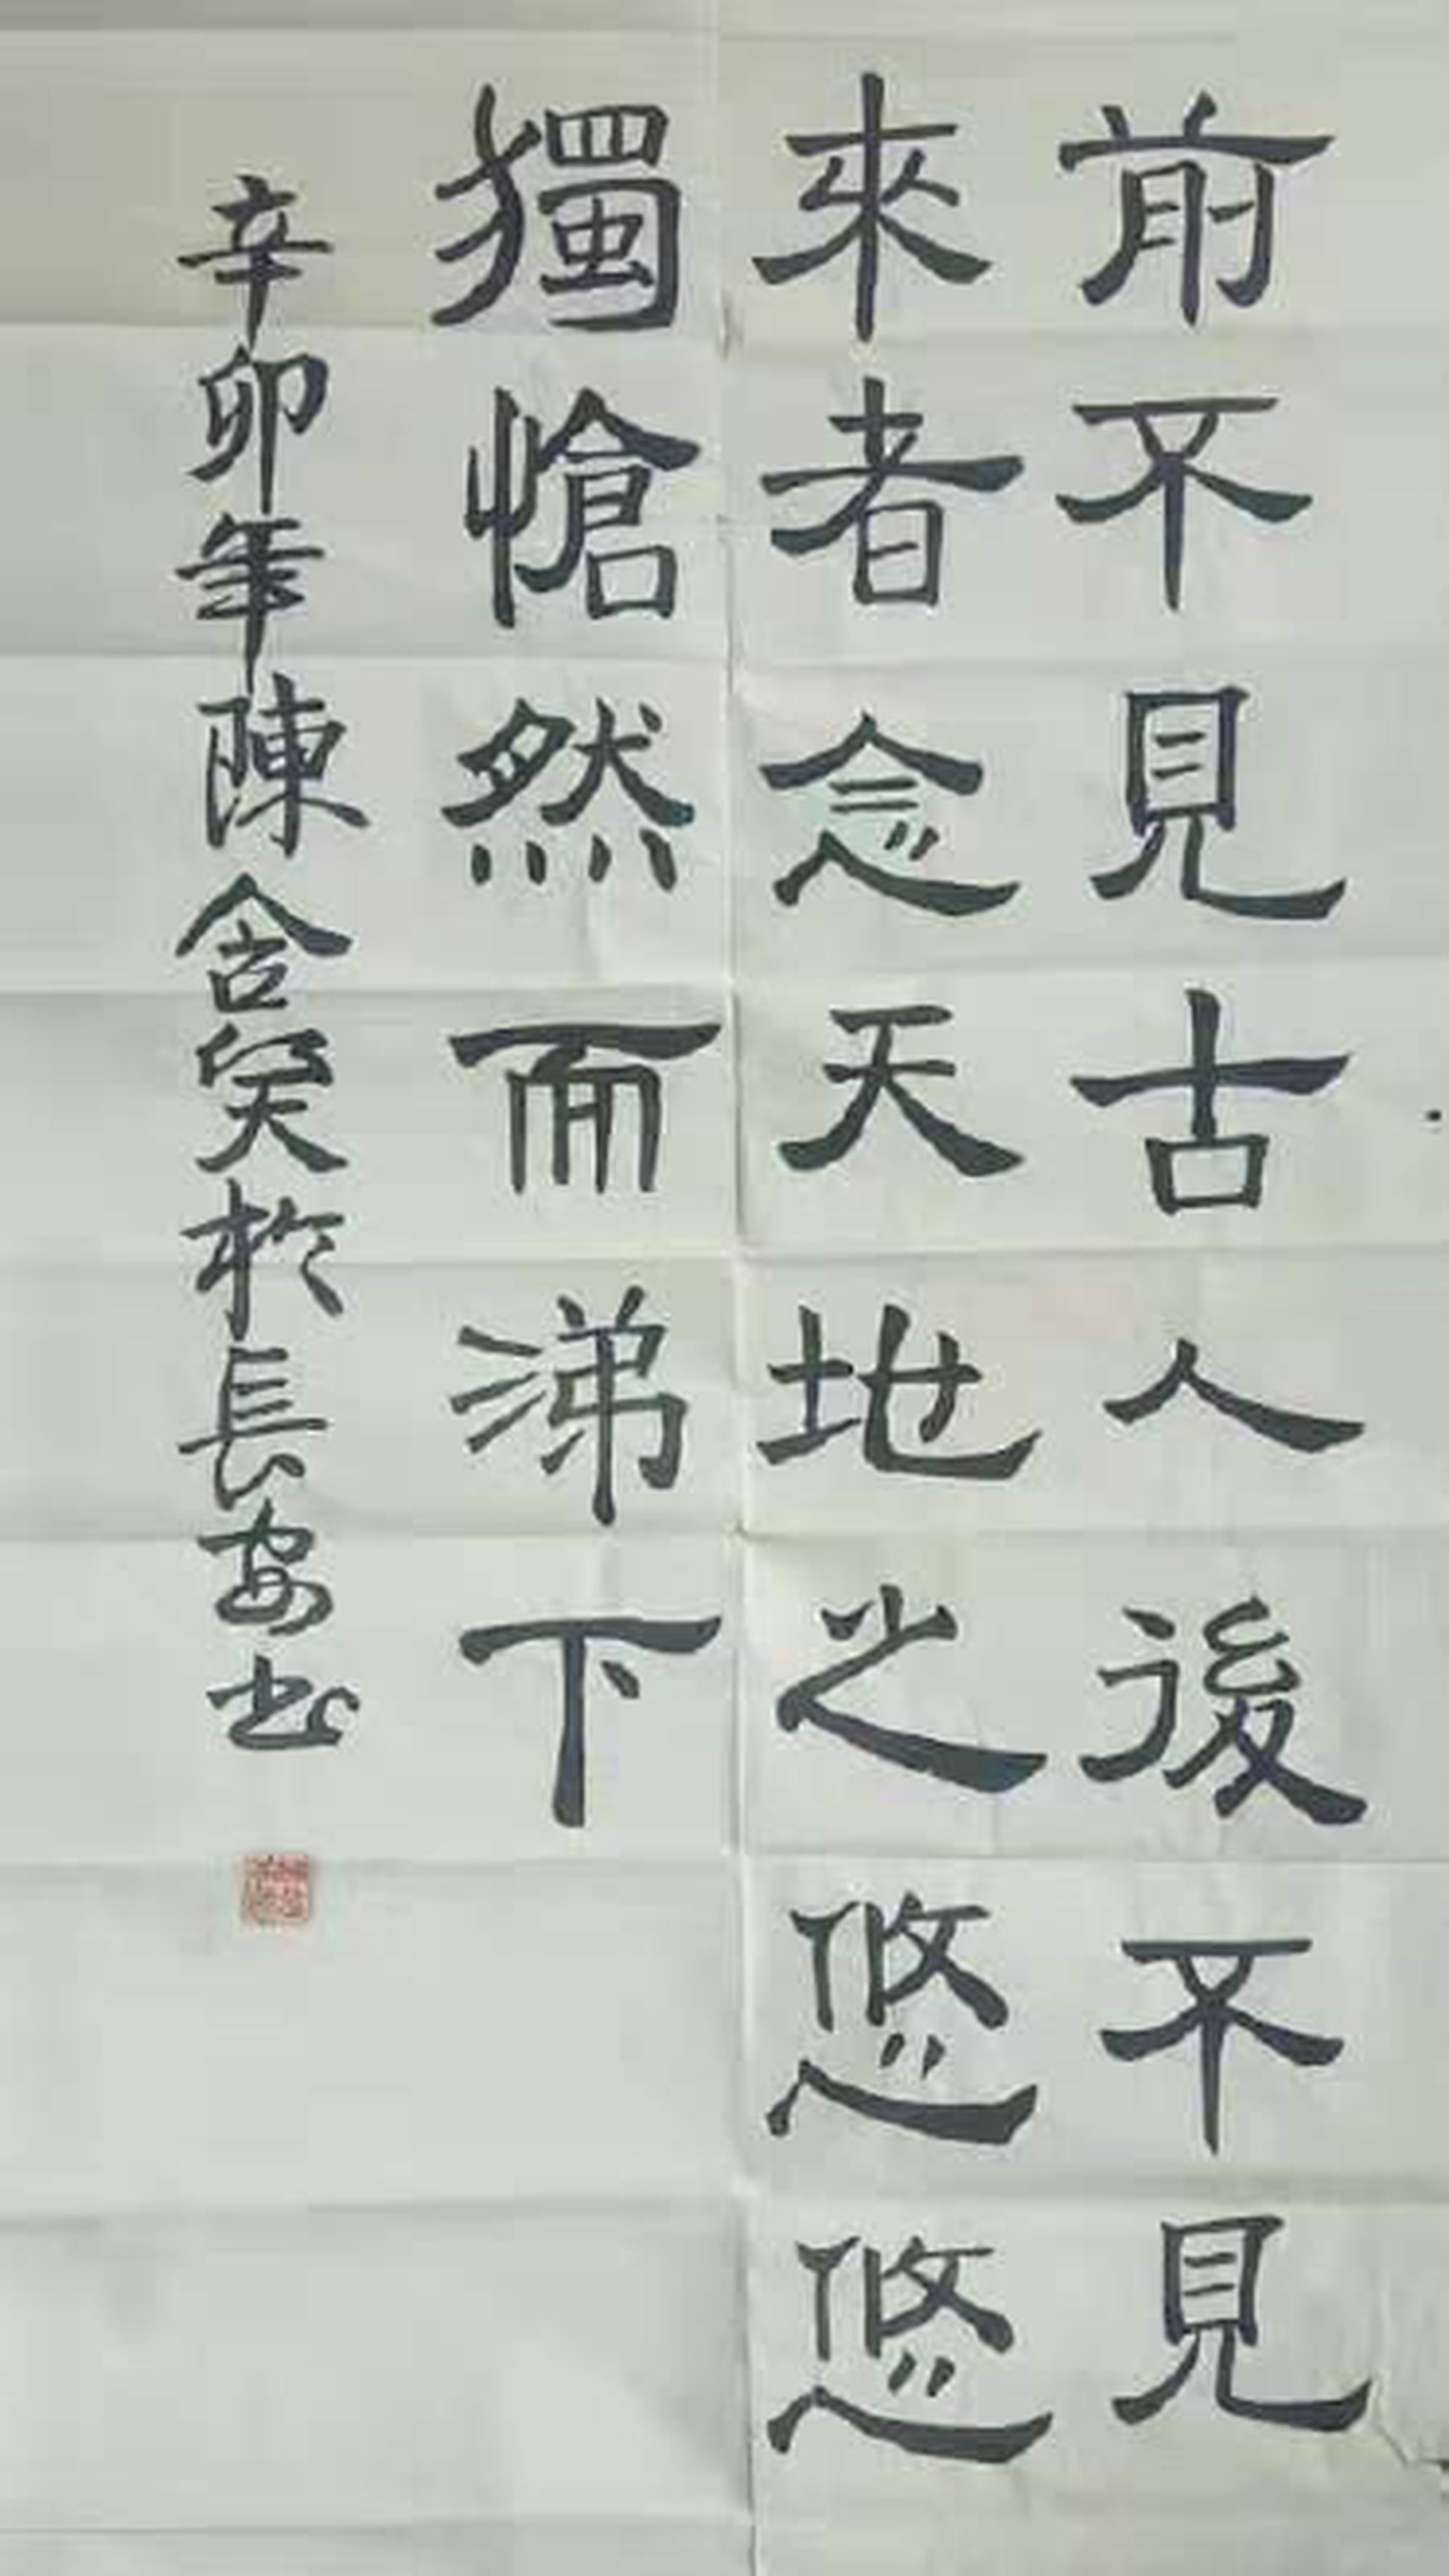 前不見古人後不見
來者念天地之悠悠
獨愴然而涕下
辛卯年陳含笑於長安书